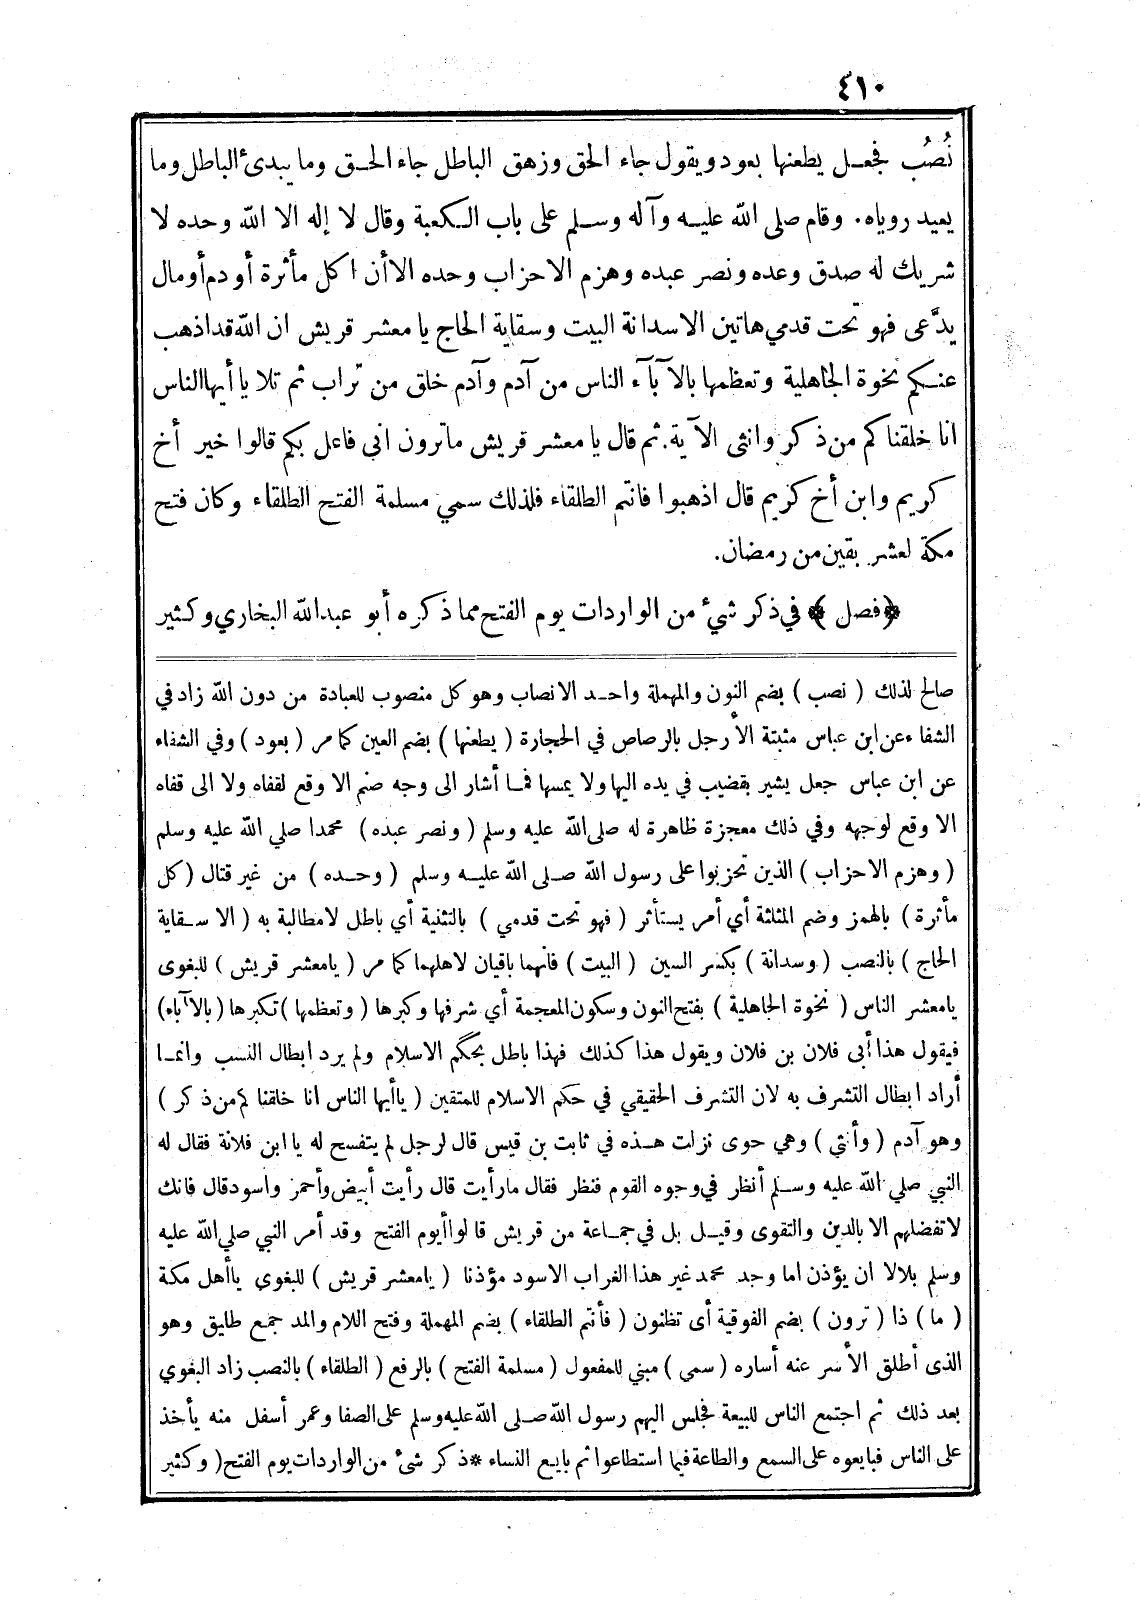 ٤١٠
نُصُب فجعل يطعنها بعود ويقول جاء الحق وزهق الباطل جاء الحق وما يبدئ الباطل وما
يعيد روياه. وقام صلى الله عليه وآله وسلم على باب الكعبة وقال لا إله الا الله وحده لا
شريك له صدق وعده ونصر عبده وهزم الاحزاب وحده الاأن اكل مأثرة أو دم أو مال
يدَّعى فهو تحت قدمي هاتين الاسدانة البيت وسقاية الحاج يا معشر قريش ان الله قد اذهب
عنكم نخوة الجاهلية وتعظمها بالآبآء الناس من آدم وآدم خلق من تراب ثم تلا يا أيها الناس
انا خلقناكم من ذكر وانثى الآية. ثم قال يا معشر قريش ماترون انى فاعل بكم قالوا خير أخ
كريم وابن أخ كريم قال اذهبوا فانتم الطلقاء فلذلك سمي مسلمة الفتح الطلقاء وكان فتح
مكة لعشر بقين من رمضان.
﴿فصل﴾ في ذكر شئ من الواردات يوم الفتح مما ذكره أبو عبدالله البخاري وكثير
صالح لذلك ( نصب ) بضم النون والمهملة واحد الانصاب وهو كل منصوب للعبادة من دون الله زاد في
الشفاء عن ابن عباس مثبتة الأرجل بالرصاص في الحجارة ( يطعنها ) بضم العين كما مر ( بعود ) وفي الشفاء
عن ابن عباس جعل يشير بقضيب في يده اليها ولا يمسها فما أشار الى وجه صنم الا وقع لقفاه ولا الى قفاه
الا وقع لوجهه وفي ذلك معجزة ظاهرة له صلى الله عليه وسلم ( ونصر عبده ) محمدا صلي الله عليه وسلم
( وهزم الاحزاب ) الذين تحزبوا على رسول الله صلى الله عليه وسلم ( وحده ) من غير قتال ( كل
مأثرة ) بالهمز وضم المثلثة أي أمر يستأثر ( فهو تحت قدمي ) بالتثنية أي باطل لا مطالبة به ( الا سقاية
الحاج ) بالنصب ( وسدانة ) بكسر السين ( البيت ) فانهما باقيان لاهلهما كما مر ( يامعشر قريش ) للبغوى
يامعشر الناس ( نخوة الجاهلية ) بفتح النون وسكون المعجمة أي شرفها وكبرها ( وتعظمها ) تكبرها ( بالاآباء )
فيقول هذا أبى فلان بن فلان ويقول هذا كذلك فهذا باطل بحكم الاسلام ولم يرد ابطال النسب وانما
أراد ابطال التشرف به لان التشرف الحقيقي في حكم الاسلام للمتقين ( ياأيها الناس انا خلقنا كم من ذكر )
وهو آدم ( وأنثي ) وهي حوى نزلت هذه في ثابت بن قيس قال لرجل لم يتفسح له يا ابن فلانة فقال له
النبي صلي الله عليه وسلم أنظر في وجوه القوم فنظر فقال مارأيت قال رأيت أبيض وأحمر وأسود قال فانك
لا تفضلهم الا بالدين والتقوى وقيل بل في جماعة من قريش قالوا أيوم الفتح وقد أمر النبي صلي الله عليه
وسلم بلالا ان يؤذن اما وجد محمد غير هذا الغراب الاسود مؤذنا ( يامعشر قريش ) للبغوي ياأهل مكة
( ما ) ذا ( ترون ) بضم الفوقية أى تظنون ( فأنتم الطلقاء ) بضم المهملة وفتح اللام والمد جمع طليق وهو
الذى أطلق الأسر عنه أساره ( سمي ) مبني للمفعول ( مسلمة الفتح ) بالرفع ( الطلقاء ) بالنصب زاد البغوي
بعد ذلك ثم اجتمع الناس للبيعة فجلس اليهم رسول الله صلى الله عليه وسلم على الصفا وعمر أسفل منه يأخذ
على الناس فبايعوه على السمع والطاعة فيما استطاعوا ثم بايع النساء * ذكر شئ من الواردات يوم الفتح ( وكثير